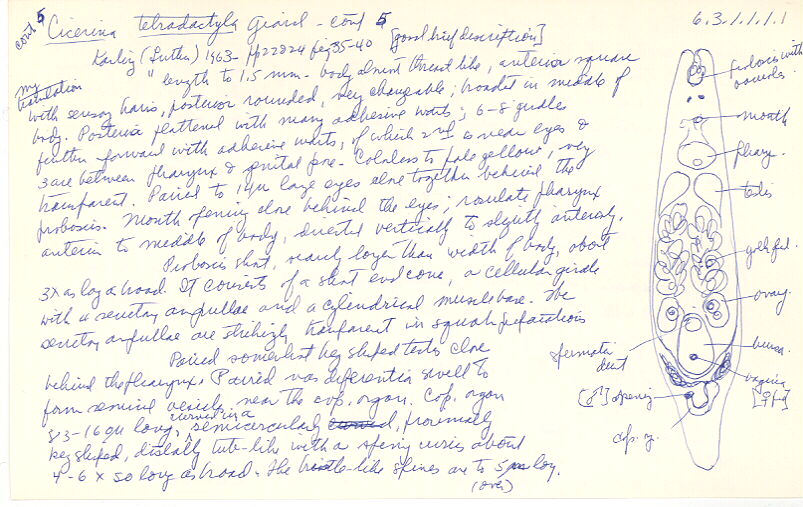 cont 5 Cicerina tetradactyla Giard - cont 5 6.3.1.1.1.1
Karling (Luther) 1963- pp22&24 fig 35-40 [good brief description]
my translation
" length to 1.5 mm - body almost thread like, anterior square
with sensory hairs, posterior rounded, very changeable; broadest in middle of
body. Posterior flattened with many adhesive warts; 6-8 girdles
further forward with adhesive warts, of which 2nd is near eyes &
3 are between pharynx & genital pore - Colorless to pale yellow, very
transparent. Paired to large eyes close together behind the
proboscis. Mouth opening close behind the eyes; rosulate pharynx
anterior to middle of body, directed vertically to slightly anteriorly.
Proboscis short, scarcely longer than width of body, about
3x as long as broad. It consists of a short end cone, a cellular girdle
with a secretory ampullae and a cylindrical muscle base. The
secretory ampullae are strikingly transparent in squash preparations
Paired somewhat keg shaped testes close
behind the pharynx. Paired vas deferentia swell to
form seminal vesicle, near the cop. organ. Cop. organ
83-169µ long, curved in a semicircularly curved, proximally
keg shaped, distally tube-like with a spiny cirrus about
4-6 x so long as broad. The bristle-like spines are to 5µm long.
(over)
mouth
phary.
testis
ovary
bursa
vagina
[♀]
spermatic duct
[♂] opening
cop. og.